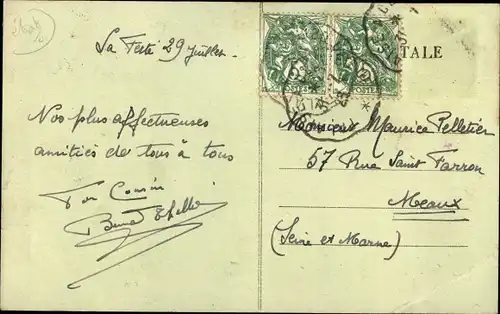 La Ferté 29 Juillet
TALE
POSTE POSTE
Nos plus affectueuses
amitiés de tous à tous
Ton Cousin
Monsieur Maurice Pelletier
57 Rue Saint Farron
Meaux
(Seine et Marne)